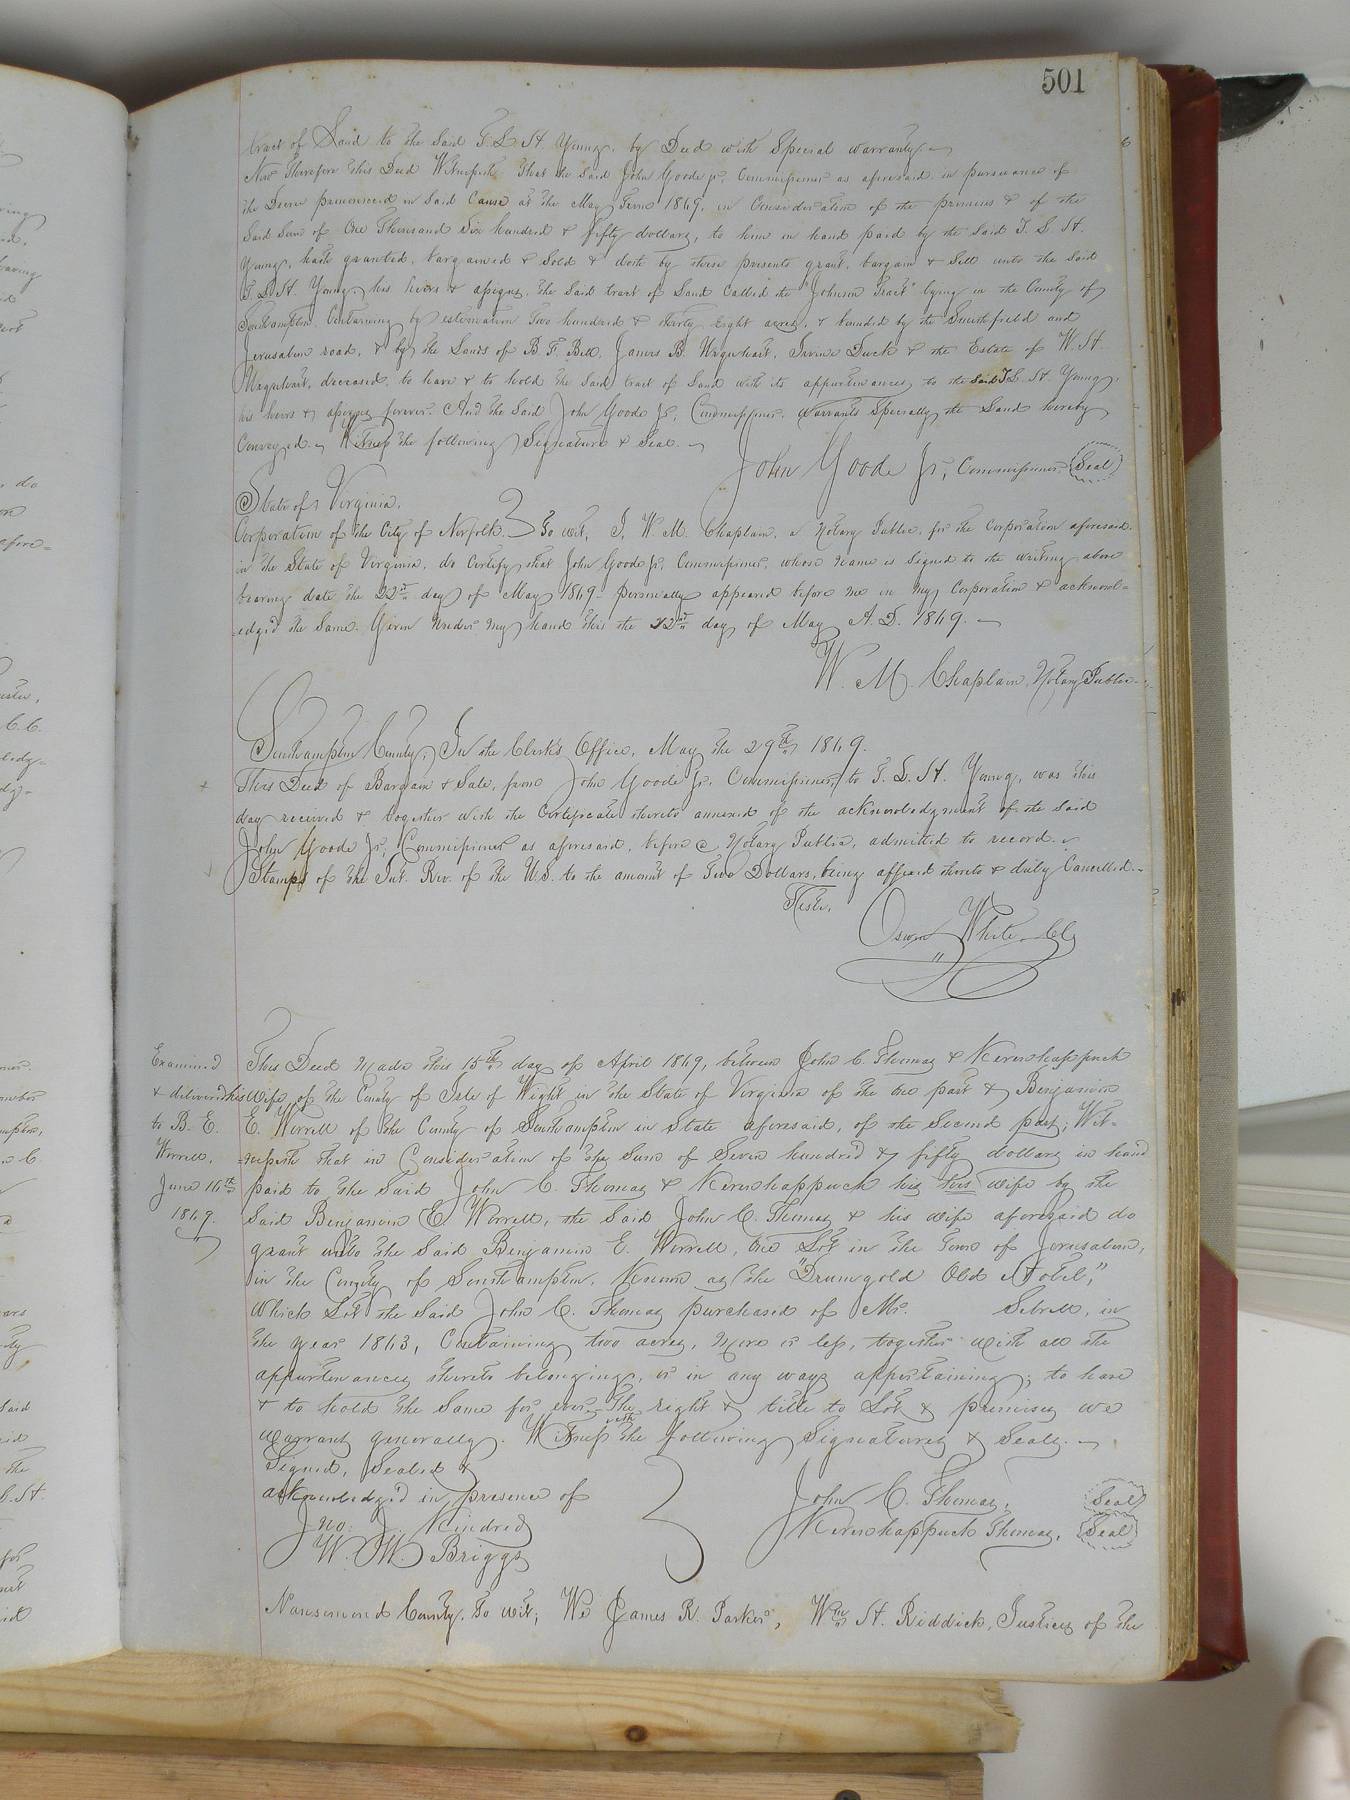 501
tract of Land to the Said T. L. H. Young, by Deed with Special warranty.
Now Therefore this Deed Witnesseth That the Said John Goode Jr, Commissioner as aforesaid in pursuance of
the Decree pronounced in Said Cause at the May Term 1869, in Consideration of the premises & of the
Said Sum of One Thousand Six hundred & fifty dollars, to him in hand paid by the Said T. L. H.
Young, hath granted, bargained & Sold & doth by these presents grant, bargain & Sell unto the Said
T. L. H. Young his heirs & assigns, the Said tract of Land Called the "Johnson Tract" lying in the County of
Southampton Containing by estimation Two hundred & thirty eight acres, & bounded by the Smithfield and
Jerusalem road, & by the Lands of B. F. Bell, James B. Urquhart, Irvine Duck & the Estate of W. H.
Urquhart, deceased, to have & to hold the Said tract of Land with its appurtenances, to the Said T. L. H. Young,
his heirs & assigns forever. And the Said John Goode Jr, Commissioner, warrants Specially the Land hereby
Conveyed. Witness the following Signature & Seal.
John Goode Jr, Commissioner (Seal)
State of Virginia,
Corporation of the City of Norfolk. To wit, I, W. M. Chaplain, a Notary Public, for the Corporation aforesaid
in the State of Virginia, do Certify that John Goode Jr, Commissioner, whose name is Signed to the writing above
bearing date the 22d day of May 1869 personally appeared before me in my Corporation & acknowl=
=edg'd the Same. Given under my hand this the 22d day of May A. D. 1869.
W. M. Chaplain, Notary Public
Southampton County; In the Clerk's Office, May the 29th 1869.
This Deed of Bargain & Sale, from John Goode Jr. Commissioner, to T. L. H. Young, was this
day received & together with the Certificate thereto annexed of the acknowledgment of the Said
John Goode Jr, Commissioner as aforesaid, before a Notary Public, admitted to record.
Stamps of the Int. Rev. of the U.S. to the amount of Two Dollars, being affixed thereto & duly Cancelled.
Teste,
Oswin White CC
Examined
& delivered
to B. E.
Worrell,
June 16th
1869.
This Deed made this 15th day of April 1869, between John C. Thomas & Kerenhappuck
his Wife of the County of Isle of Wight in the State of Virginia of the one part & Benjamin
E. Worrell of the County of Southampton in State aforesaid, of the Second part; Wit=
=nesseth that in Consideration of the Sum of Seven hundred & fifty dollars in hand
paid to the Said John C. Thomas & Kerenhappuck his this wife by the
Said Benjamin E. Worrell, the Said John C. Thomas & his wife aforesaid do
grant unto the Said Benjamin E. Worrell, one Lot in the Town of Jerusalem,
in the County of Southampton, Known as the "Drumgold Old Hotel,"
which Lot the Said John C. Thomas purchased of Mr. Sebrell, in
the year 1863, Containing two acres, more or less, together with all the
appurtenances thereto belonging, or in any ways appertaining; to have
& to hold the Same for ever. The right & title to Lot & premises we
warrant generally. Witness the following Signatures & Seals.
Signed, Sealed &
acknowledg'd in presence of
Jno. J. Kindred
W. W. Briggs
John C. Thomas, (Seal)
Kerenhappuck Thomas, (Seal)
Nansemond County, To wit; We James R. Parker, Wm H. Riddick, Justices of the